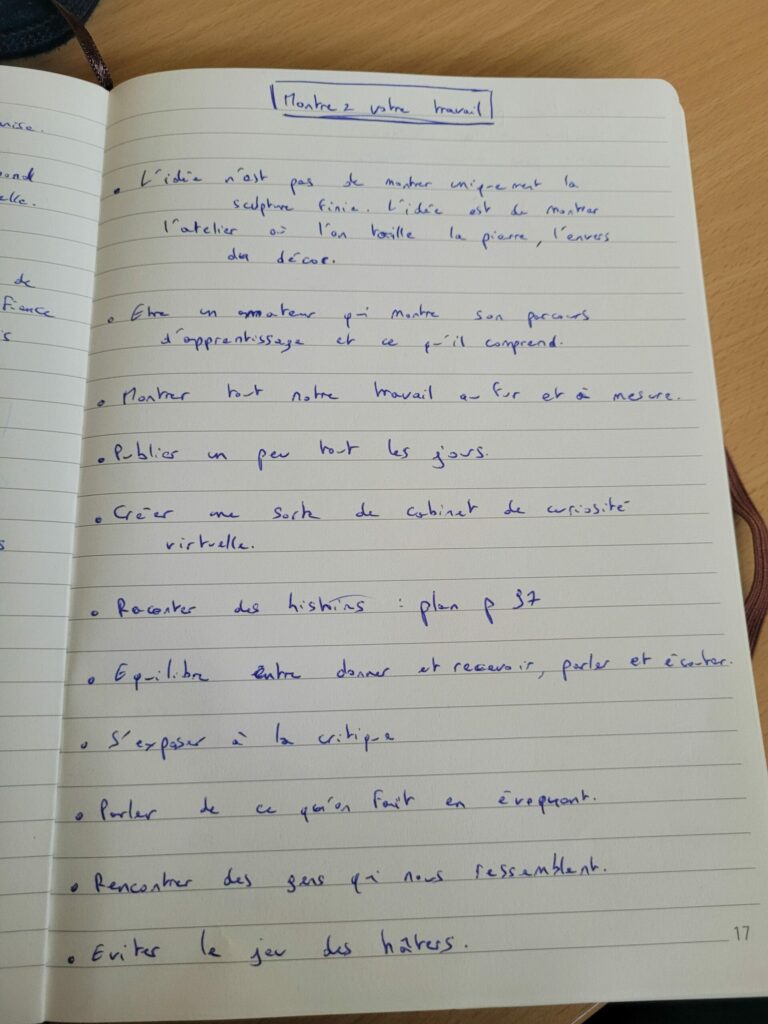 Montrez votre travail
• L'idée n'est pas de montrer uniquement la
sculpture finie. L'idée est de montrer
l'atelier où l'on taille la pierre, l'envers
du décor.
• Etre un amateur qui montre son parcours
d'apprentissage et ce qu'il comprend.
• Montrer tout notre travail au fur et à mesure.
• Publier un peu tout les jours.
• Créer une sorte de cabinet de curiosité
virtuelle.
• Raconter des histoires : plan p 37
• Equilibre entre donner et recevoir, parler et écouter.
• S'exposer à la critique
• Parler de ce qu'on fait en évoquant.
• Rencontrer des gens qui nous ressemblent.
• Eviter le jeu des hâters.
17
elle.
de